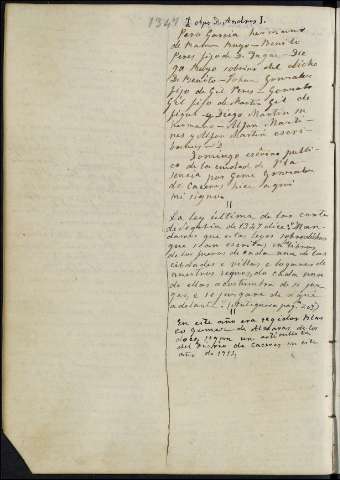 1347
Pero Garcia hermano
de Mateo Mayo - Benito
Peres fijo de D. Yague - Die
go Mayo sobrino del dicho
D. Benito - Johan Gonzales
fijo de Gil Peres - Gonzalo
Gil fijo de Martin Gil de
y Diego Martin su
hermano - Alfon Marti-
nes y Alfon Martin escri-
Domingo escrivano publi
co de la ciudad de Pla
sencia por Gomez Gonzalez
de Caceres hice aqui
mi signo
La ley última de las cortes
de Segovia de 1347 dice: "Man
damos que estas leyes sobredichas
que sean escritas en libros
de los fueros de cada una de las
cibdades e villas e logares de
nuestros regnos, do cada una
de ellas acostumbra de se juz
gar, e se juzgara de aqui
adelante" (
En este año era regidor Blas
co Gomez de Almaraz de los
doce, segun un articulista
del Diario de Caceres en este
año de 1911